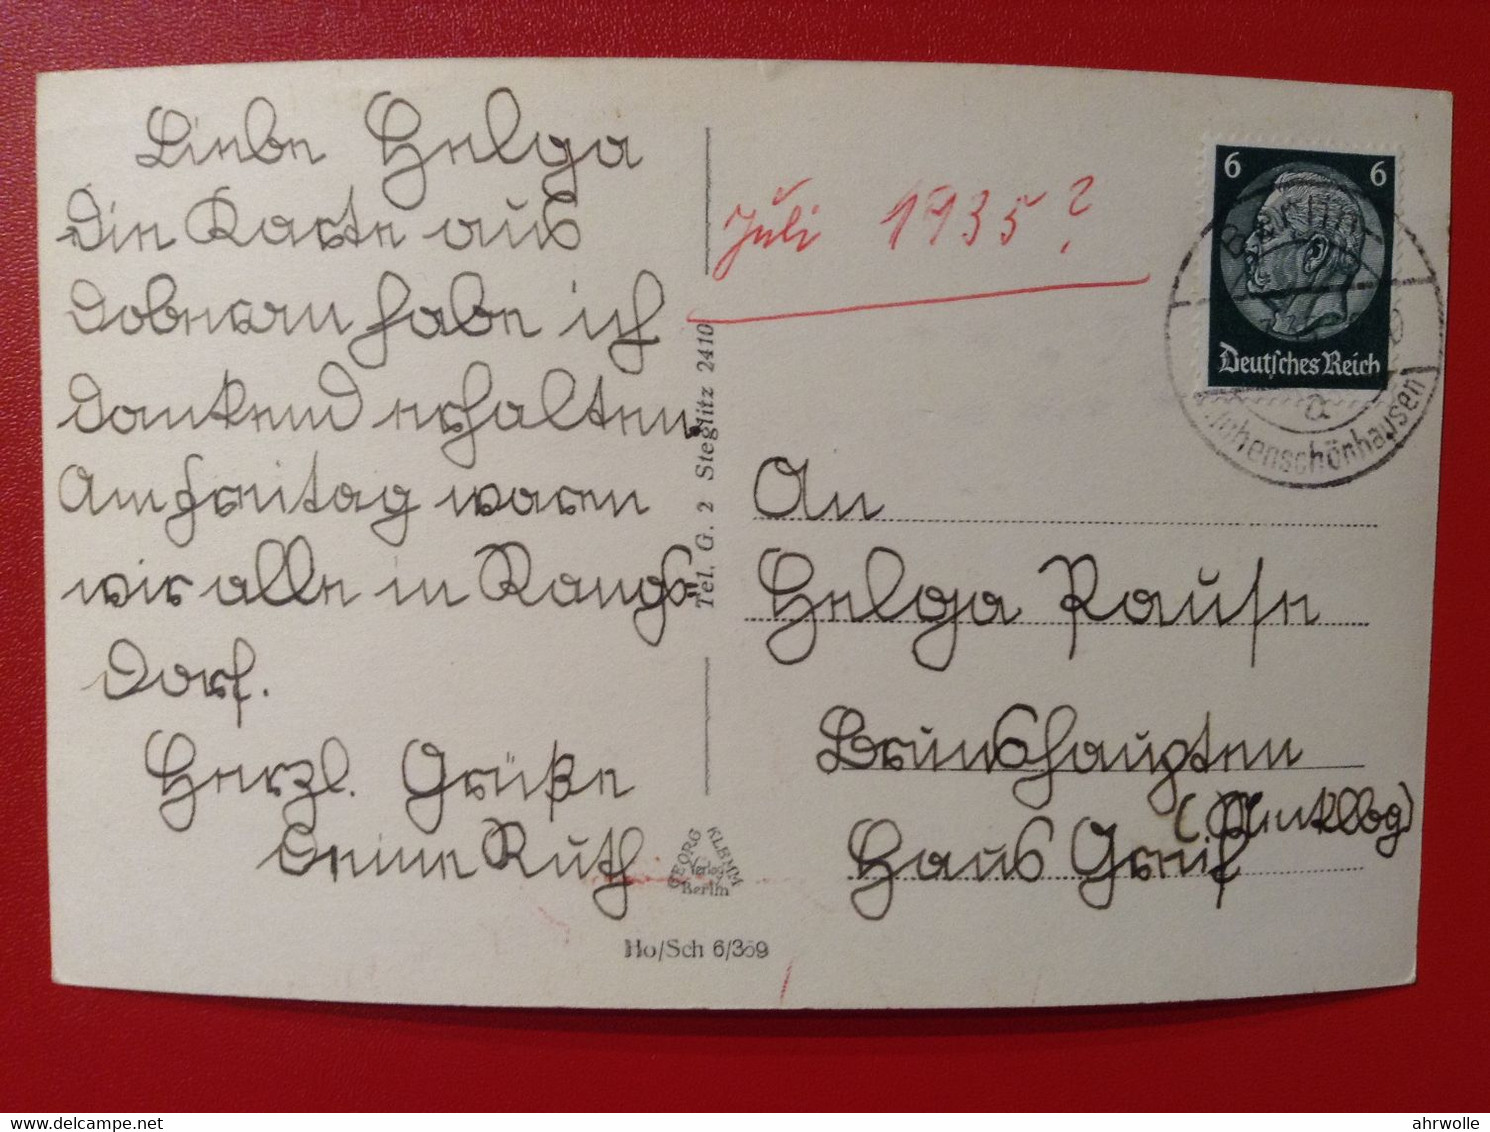 Liebe Helga
Die Karte aus
Doberan habe ich
dankend erhalten.
Am Freitag waren
wir alle in Rangs=
dorf.
Herzl. Grüße
Deine Ruth
Juli 1935?
6 6
Deutsches Reich
Berlin
a
Hohenschönhausen
An
Helga Rause
Brunshaupten
Haus Greif
Tel. G. 2 Steglitz 2410
GEORG KLEMM
Verlag
Berlin
Ho/Sch 6/369
ahrwolle